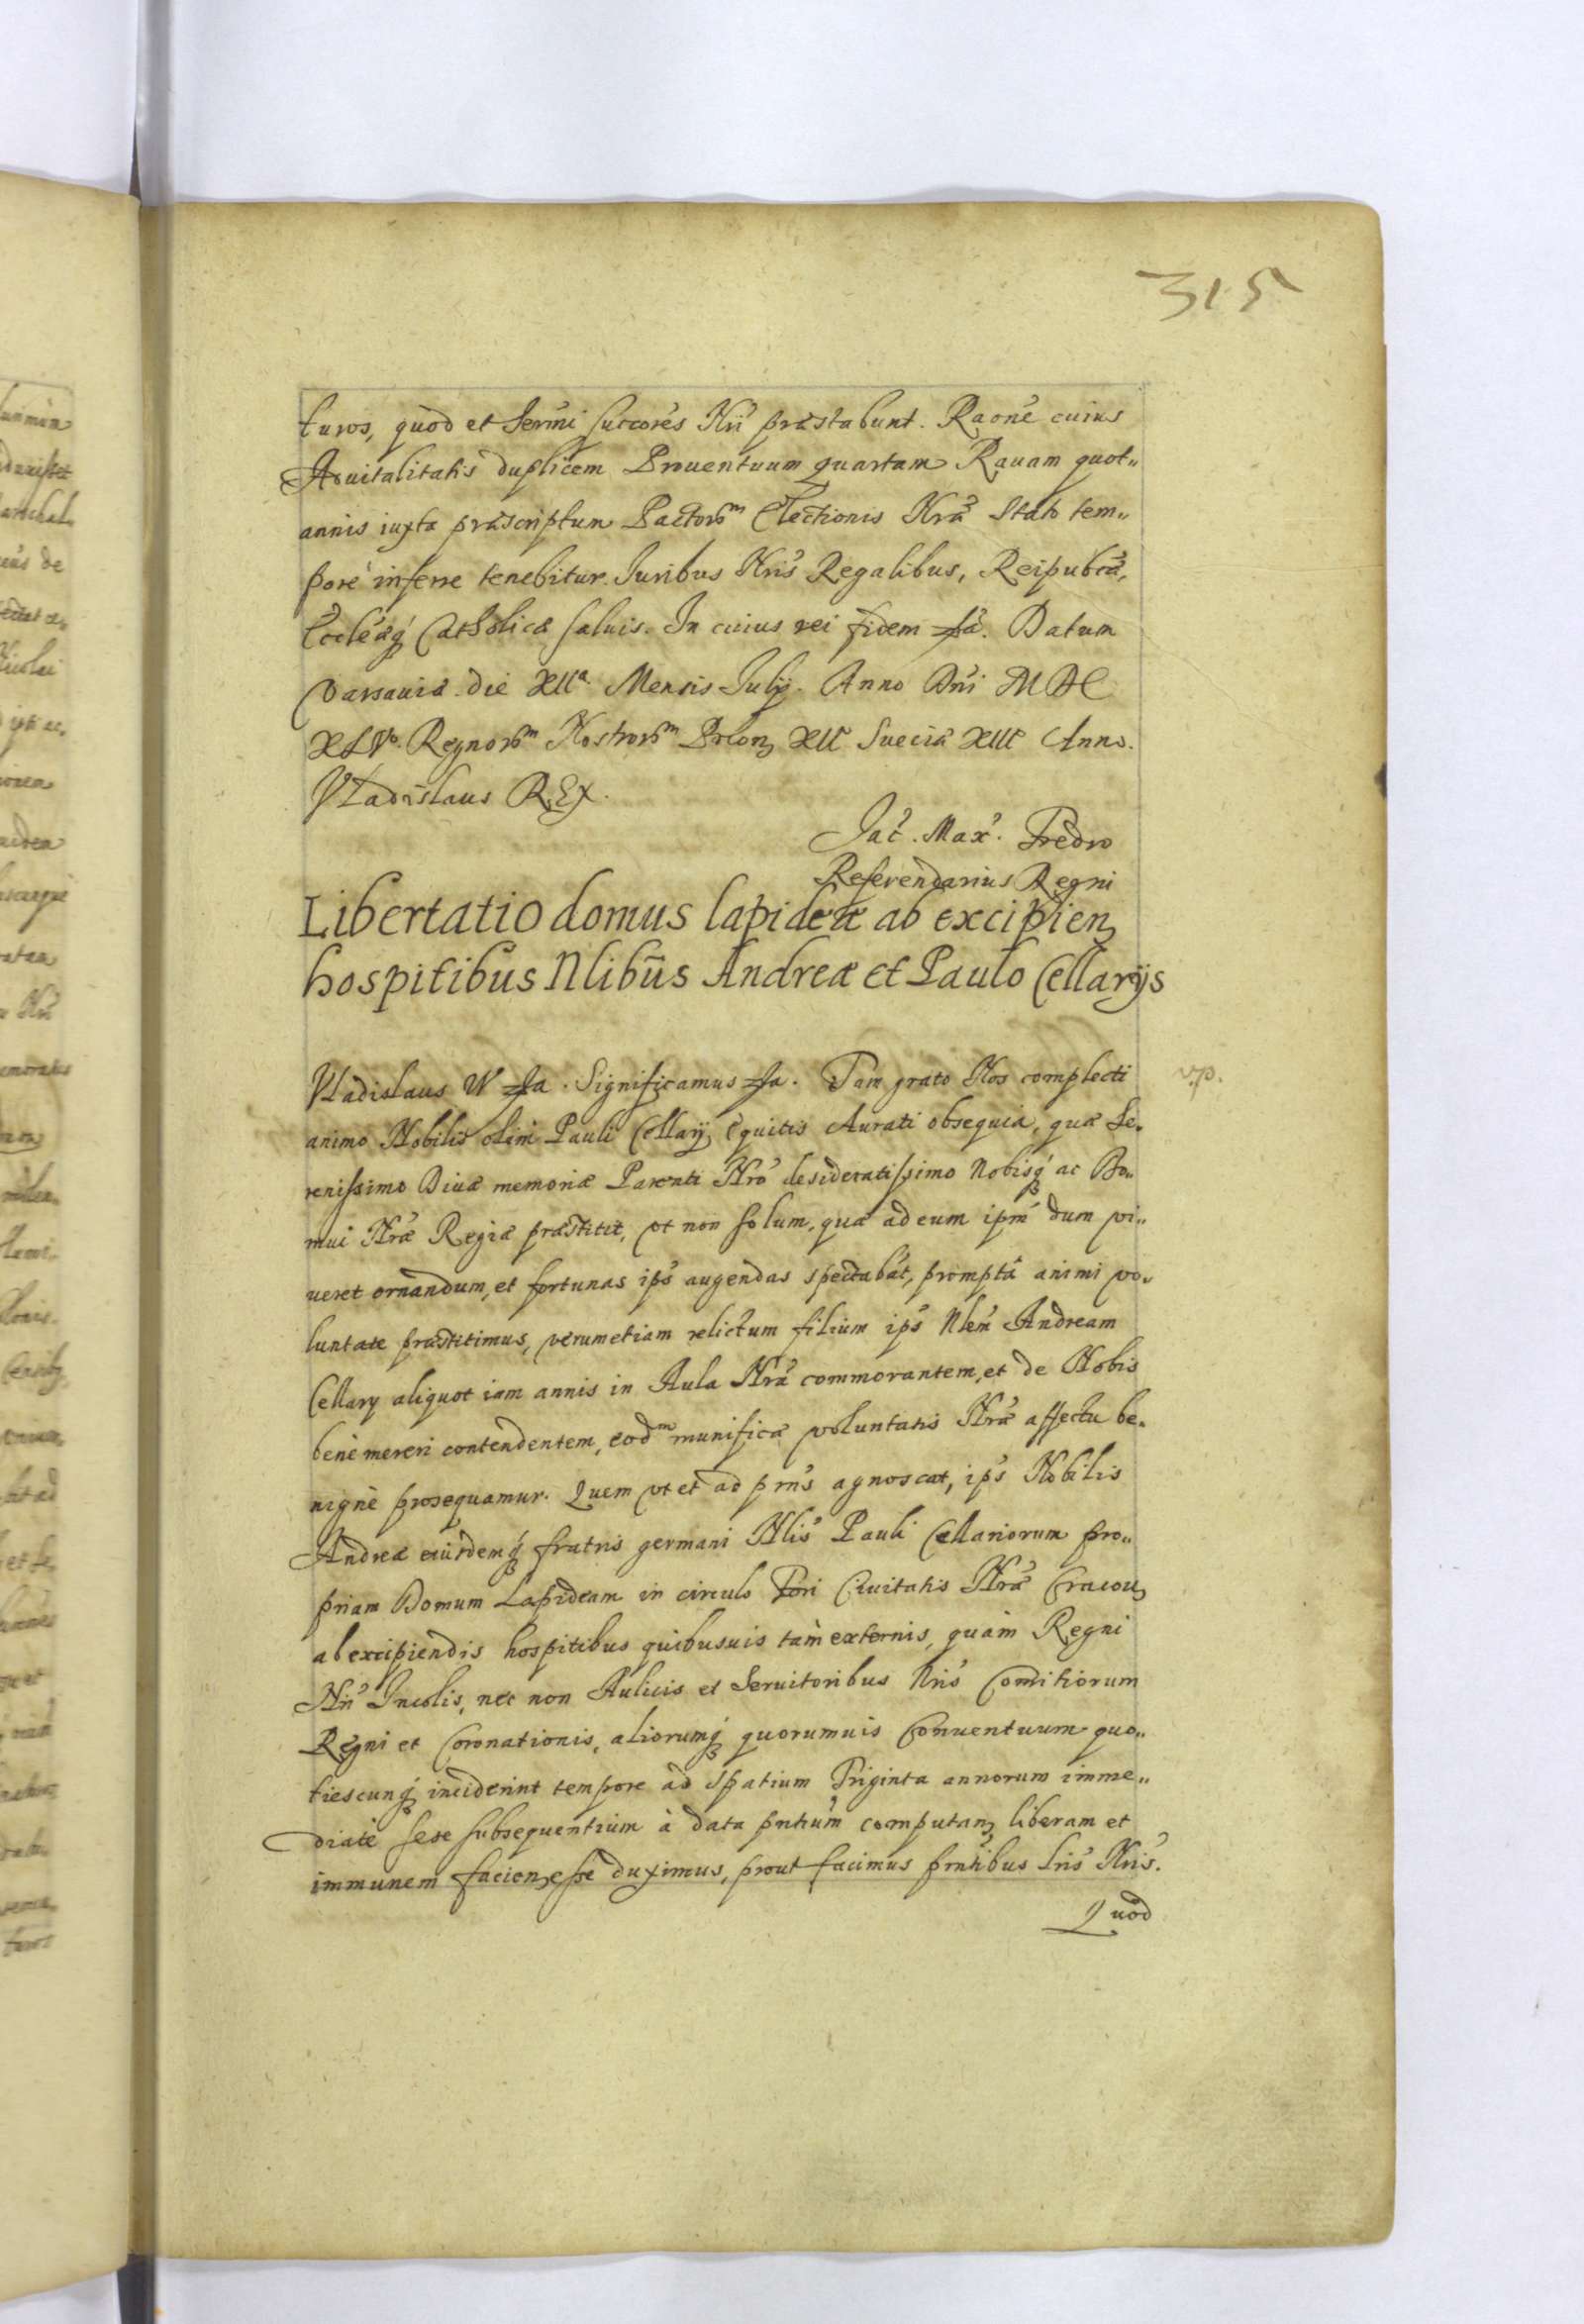 315
turos, quòd et Sermi succores Nri præstabunt. Raone cuius
Aduitalitatis duplicem Prouentuum quartam Rauam quot„
annis iuxta præscriptum Pactorm Electionis Nræ Stato tem„
pore inferre tenebitur. Juribus Nris Regalibus, Reipubcæ,
Ecclæq Catholicæ saluis. In cuius rei fidem &a. Datum
Varsauiæ die XIIa. Mensis Julij. Anno Dni MDC
XLVo. Regnorm Nostrorm Polon XIII Sueciæ XIIII Anno.
Vladislaus REX.
Jac. Max. Fredro
Referendarius Regni
Libertatio domus lapideæ ab excipien
hospitibus Nlibus Andreæ et Paulo Cellarijs
Vladislaus IV &a. Significamus &a. Tam grato Nos complecti
v.p.
animo Nobilis olim Pauli Cellarij Equitis Aurati obsequia, quæ Se„
renissimo Diuæ memoriæ Parenti Nro desideratissimo Nobisq ac Do„
mui Nræ Regiæ præstitit, vt non solum, quæ ad eum ipm dum vi„
ueret ornandum, et fortunas ips augendas spectabat, promptâ animi vo„
luntate præstitimus, verumetiam relictum filium ips Nlem Andream
Cellary aliquot iam annis in Aula Nra commorantem, et de Nobis
benè mereri contendentem, eodm munificæ voluntatis Nræ affectu be„
nignè prosequamur. Quem vt et ad prns agnoscat, ips Nobilis
Andreæ eiusdemq fratris germani Nlis Pauli Cellariorum pro„
priam Domum Lapideam in circulo Fori Ciuitatis Nræ Cracou
ab excipiendis hospitibus quibusuis tam externis, quàm Regni
Nri Incolis, nec non Aulicis et Seruitoribus Nris Comitiorum
Regni et Coronationis, aliorumq quorumuis Conuentuum quo„
tiescunq inciderint tempore ad spatium Triginta annorum imme„
diatè sese subsequentium à data pntium computan liberam et
immunem facien esse duximus, prout facimus prntibus Lris Nris.
Quod